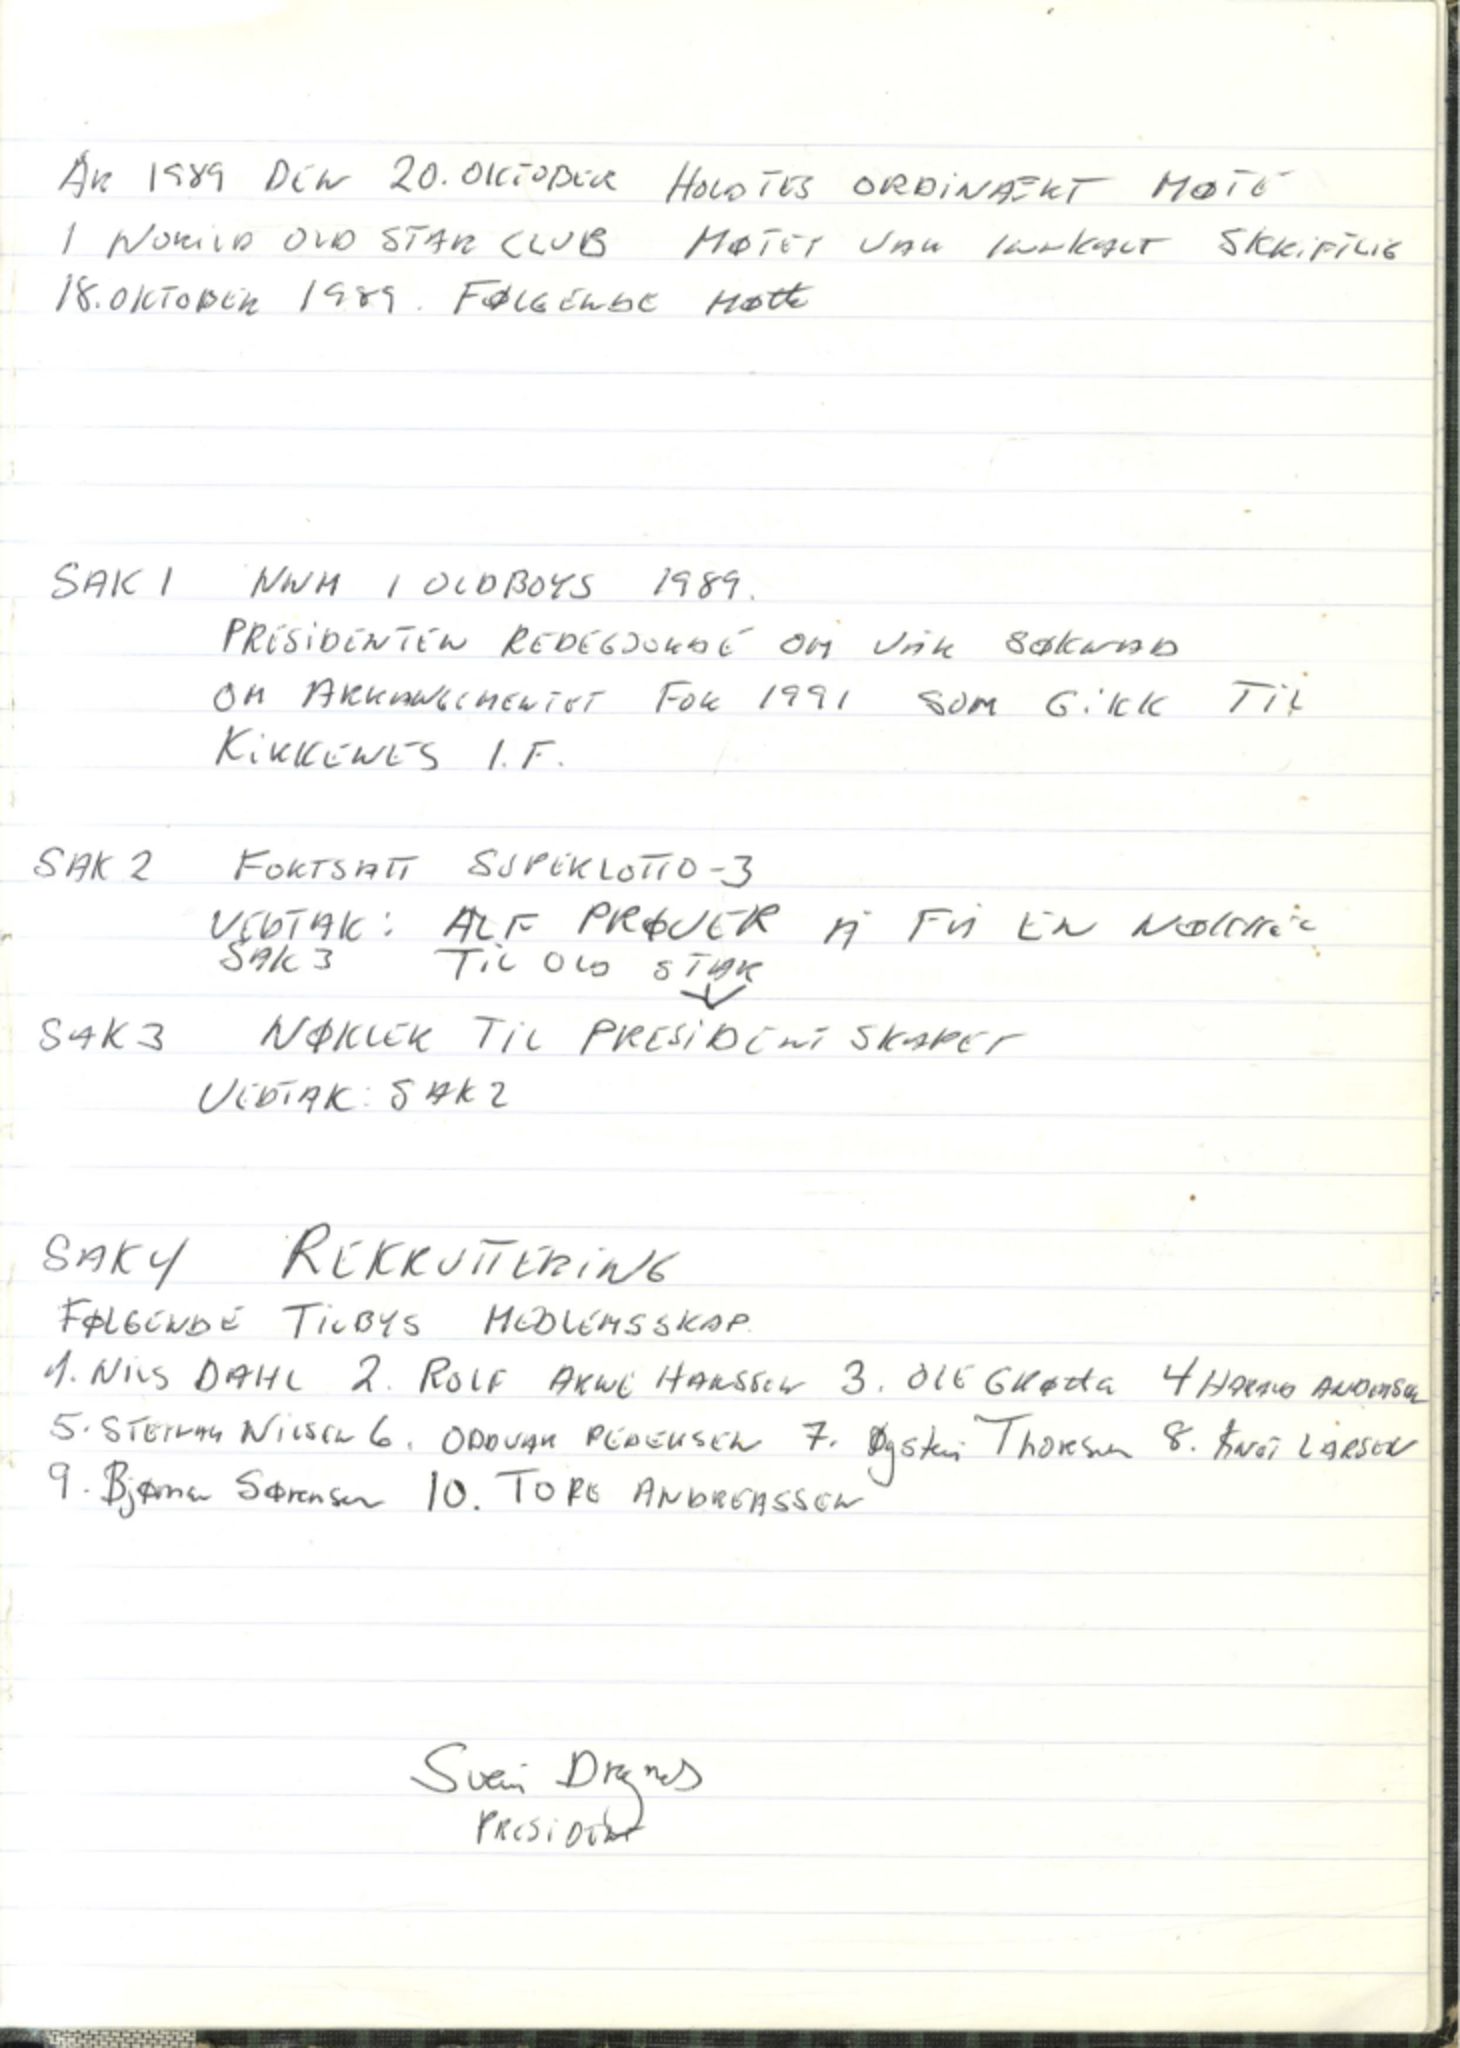 ÅR 1989 DEN 20. OKTOBER HOLDTES ORDINÆRT MØTE
I NORILD OLD STAR CLUB MØTET VAR INNKALT SKRIFTLIG
18. OKTOBER 1989. FØLGENDE MØTTE
SAK 1 NNM I OLDBOYS 1989.
PRESIDENTEN REDEGJORDE OM VÅR SØKNAD
OM ARRANGEMENTET FOR 1991 SOM GIKK TIL
KIRKENES I.F.
SAK 2 FORTSATT SUPERLOTTO-3
VEDTAK: ALF PRØVER Å FÅ EN NØKKEL
SAK 3 TIL OLD STAR
SAK 3 NØKLER TIL PRESIDENTSKAPET
VEDTAK: SAK 2
SAK 4 REKRUTTERING
FØLGENDE TILBYS MEDLEMSSKAP.
1. NILS DAHL 2. ROLF ARNE HANSSEN 3. OLE GRØTTA 4 HARALD ANDERSEN
5. STEINAR NILSEN 6. ODDVAR PEDERSEN 7. Øystein Thorsen 8. KNUT LARSEN
9. Bjørnar Sørensen 10. TORE ANDREASSEN
Svein Dragnes
PRESIDENT